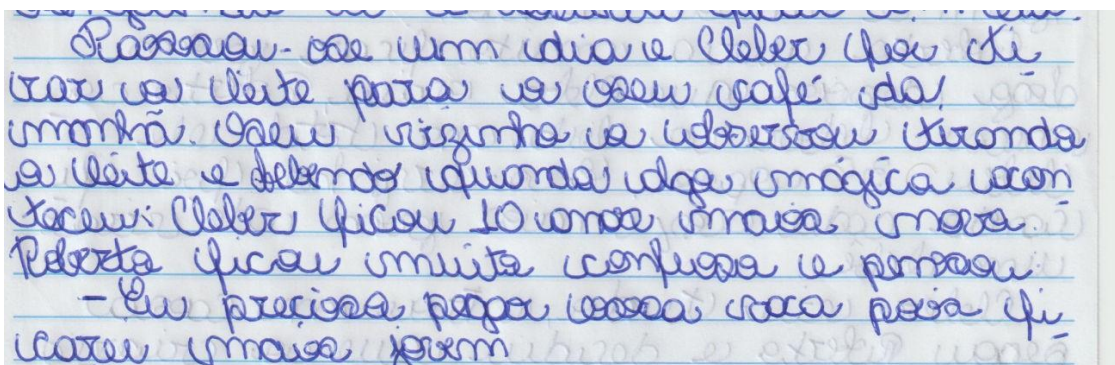 Passou-se um dia e Cleber foi ti
rar o leite para o seu café da
manhã. Seu vizinho o observou tirando
o leite e bebendo quando algo mágico acon
teceu: Cleber ficou 10 anos mais novo.
Roberto ficou muito confuso e pensou:
- Eu preciso pegar essa vaca para fi
carei mais jovem